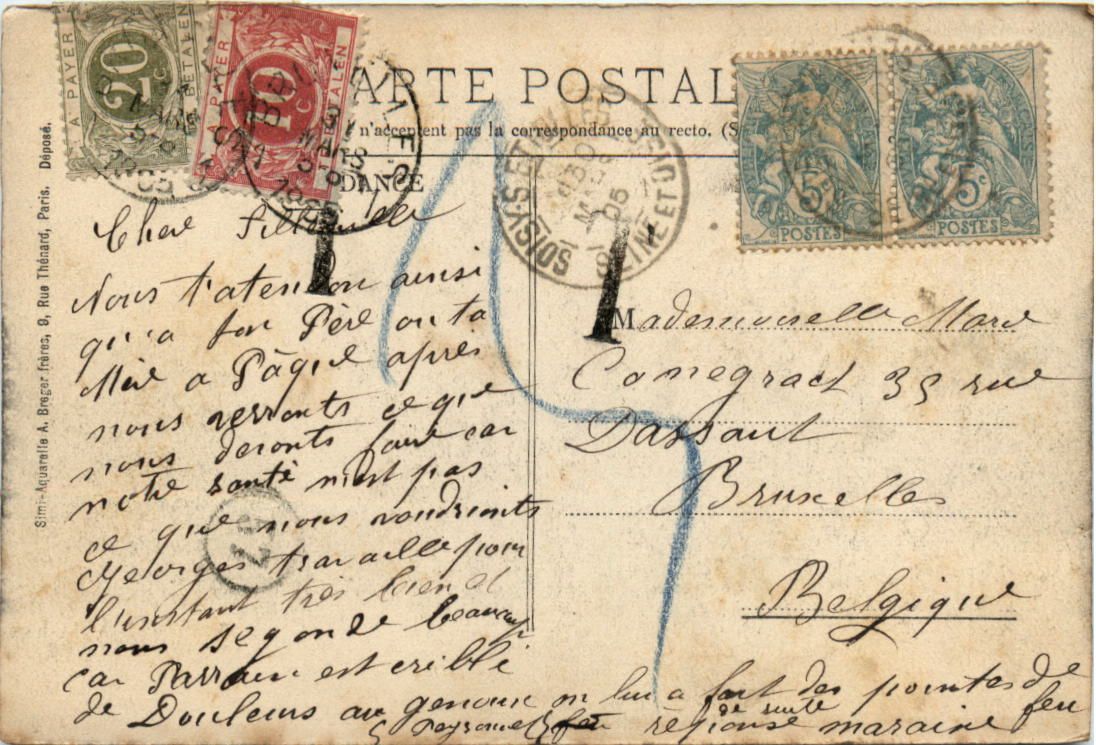 CARTE POSTALE
n'acceptent pas la correspondance au recto. (S
DANCE
A PAYER
20 c
TE BETALEN
A PAYER
10 c
BETALEN
BRUXELLES
MARS
1905
SOISY-S-ETIOLLES
SEINE ET OISE
30
MARS
05
5c
POSTES
5c
POSTES
T
T
15
Simi-Aquarelle A. Breger frères, 9, Rue Thénard, Paris. Déposé.
Chere Filleulle
Nous t'atendon ainsi
qu'a ton Père ou ta
Mère a Pâque après
nous verronts ce que
nous deronts faire car
notre santé n'est pas
ce que nous voudrionts
Georges travaille pour
l'instant très bien et
nous segonde beaucoup
car Parrain est criblé
de Douleurs au genoux on lui a fait des pointes de
feu
de suite
réponse maraine
Mademoiselle Marie
Canegract 35 rue
Dassaut
Bruxelles
Belgique